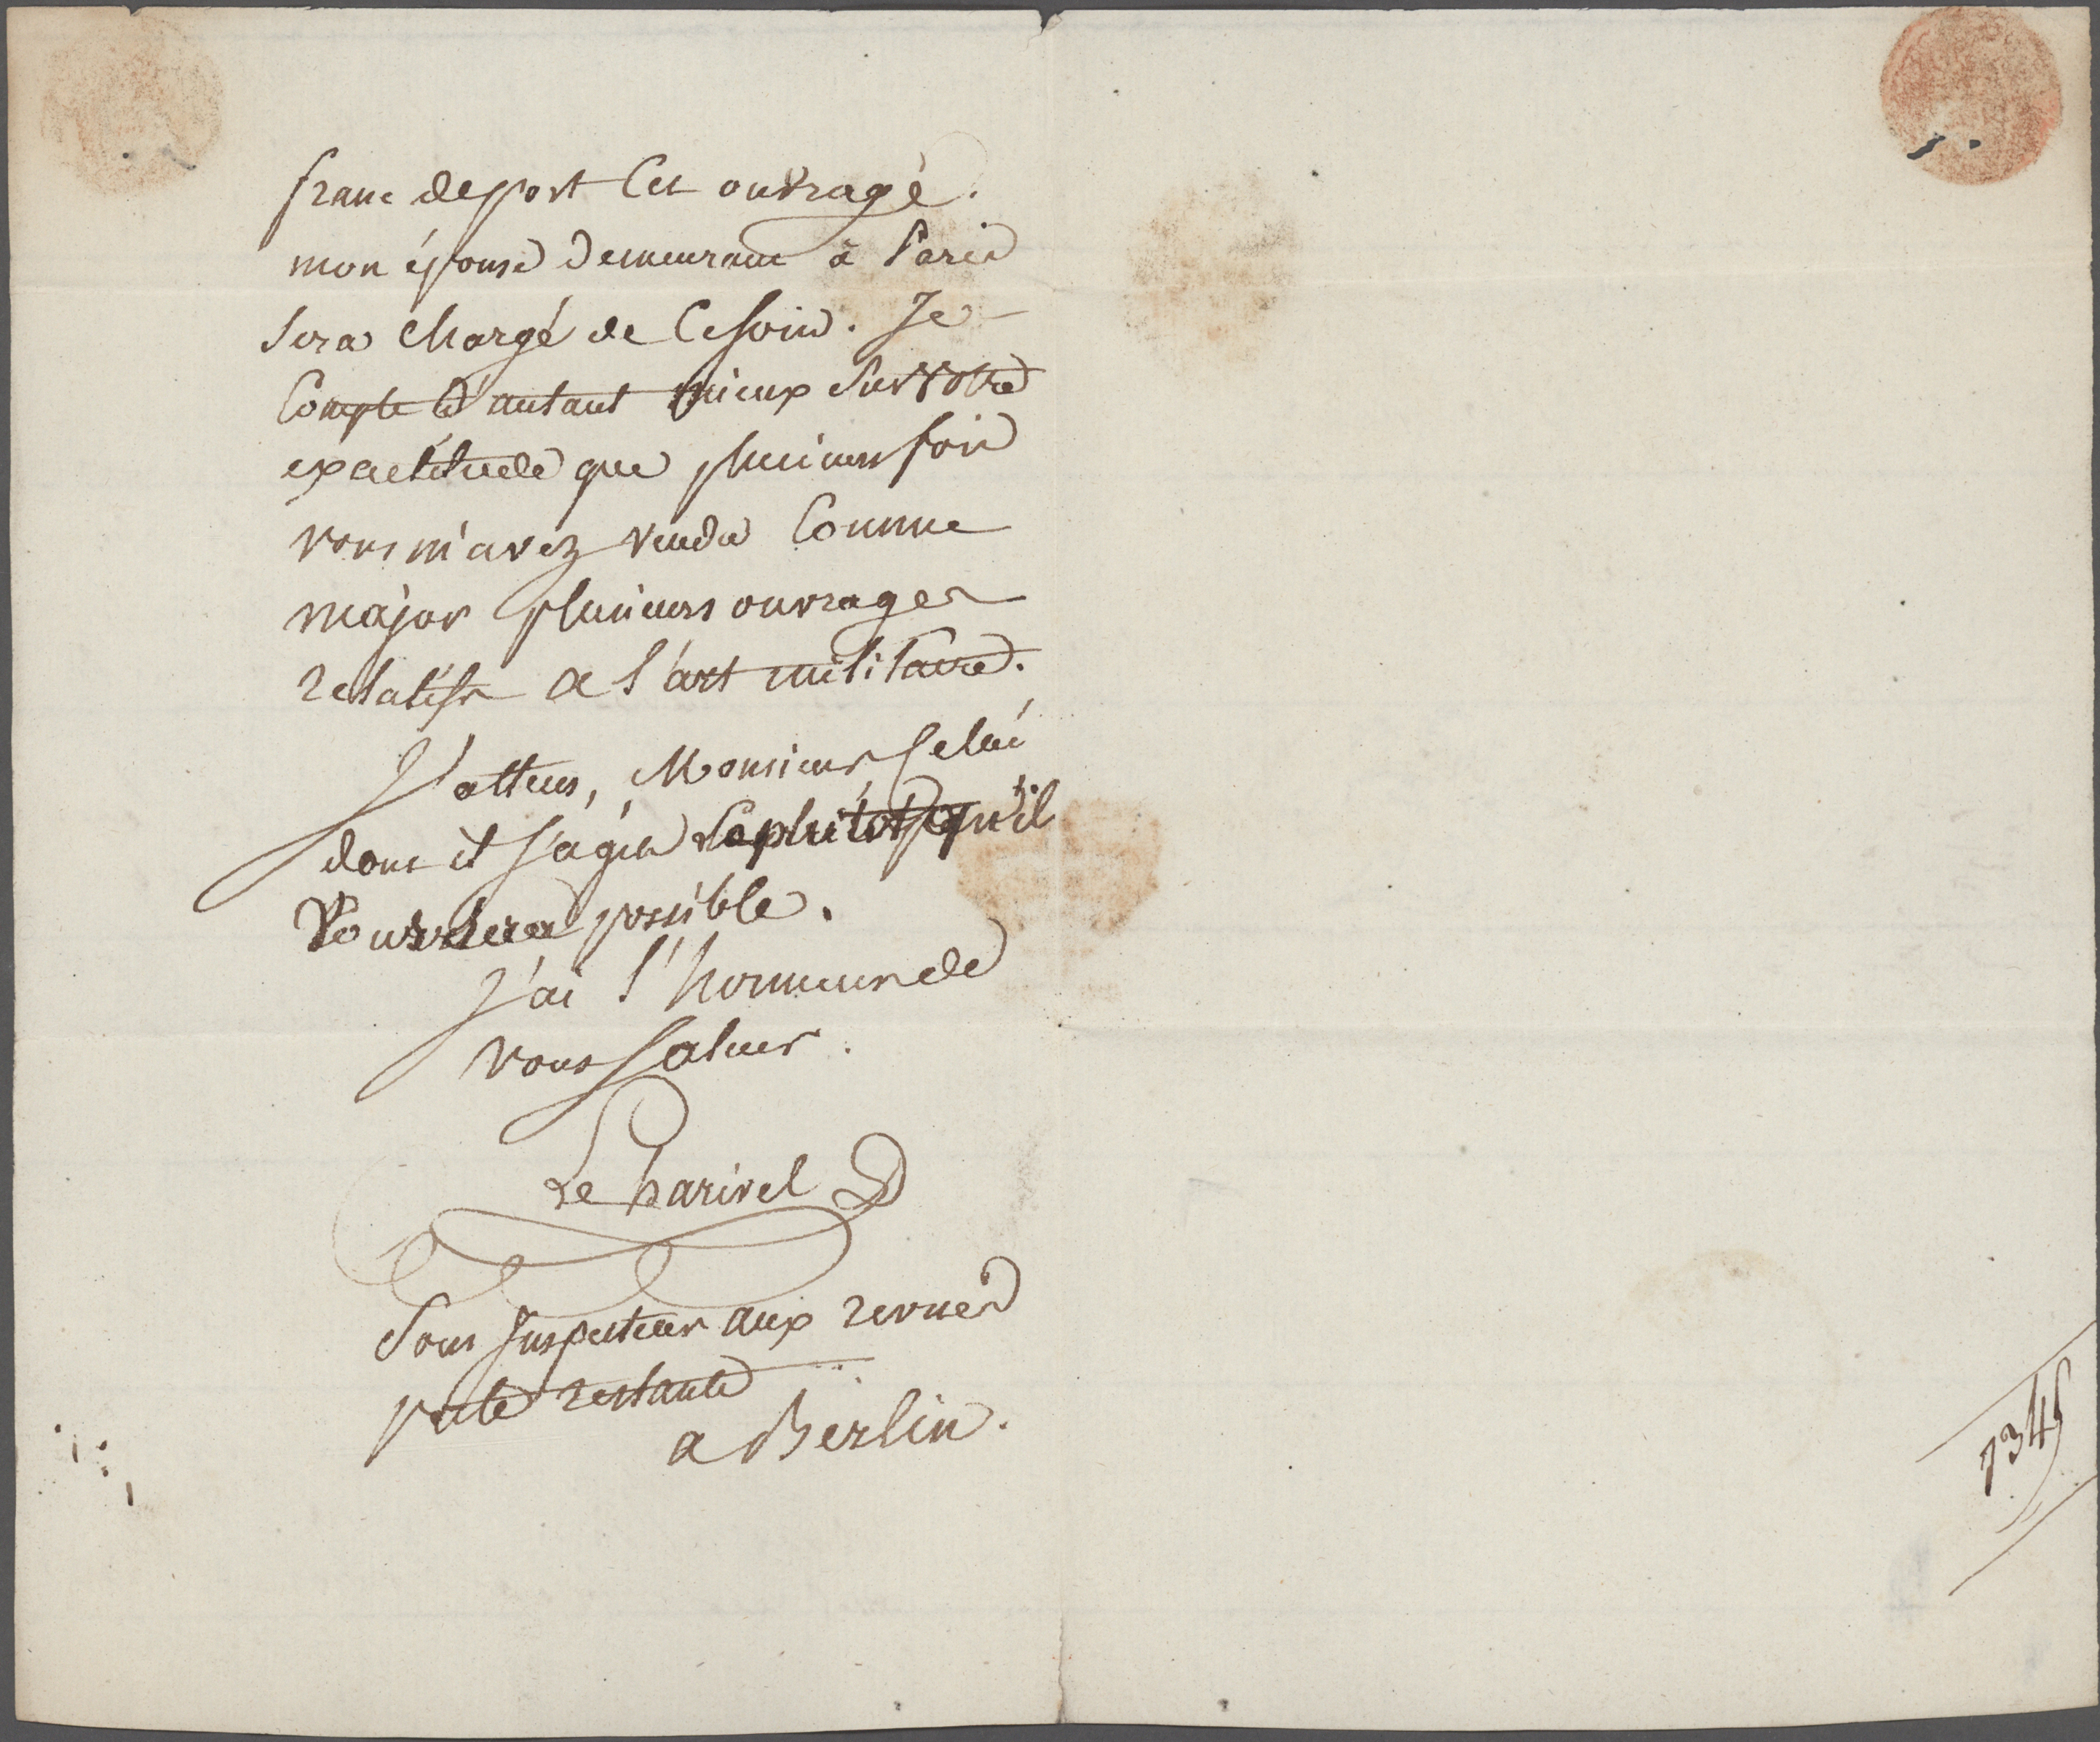 franc de port Cet ouvrage.
mon épouse demeurant à Paris
sera chargé de Ce soin. Je
Compte d'autant mieux sur votre
exactitude que plusieurs fois
vous m'avez vendu Comme
major plusieurs ouvrages
relatifs a l'art militaire.
J'attens, Monsieur Celui
dont il s'agit le plutôt qu'il
Vous sera possible.
J'ai l'honneur de
vous saluer.
Le harivel
Sous Inspecteur aux revues
poste restante
a Berlin.